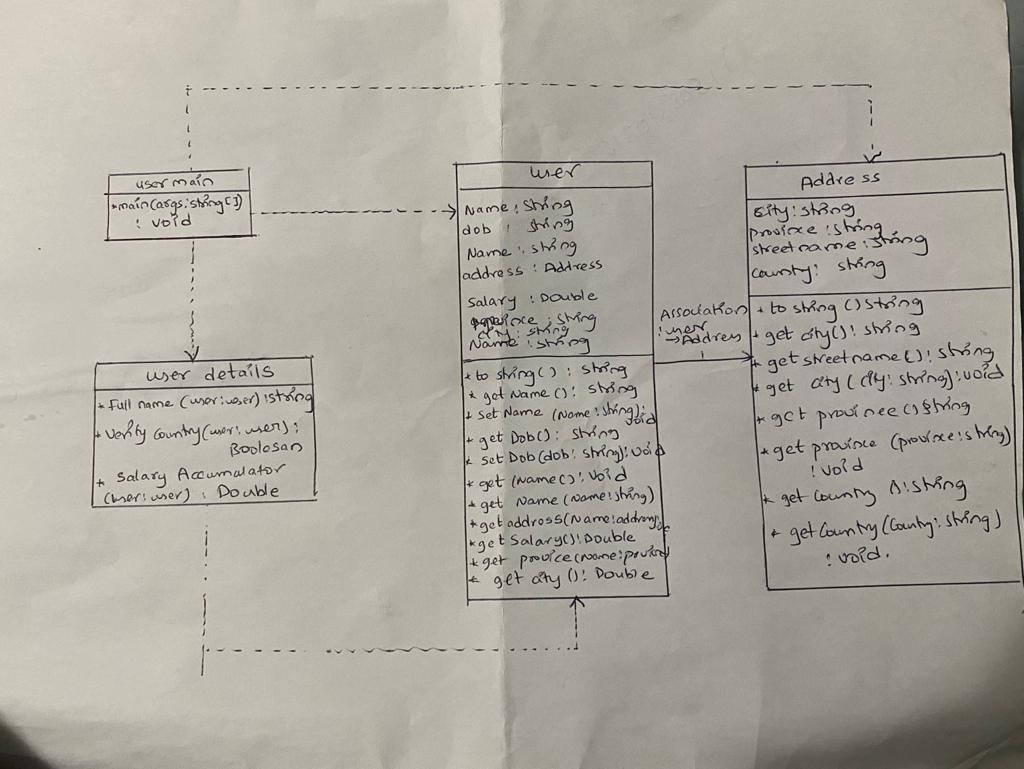 user main
+main(args:string[])
: void
user details
+ Full name (user:user) :string
+ Verify Country(user:user):
Boolosan
+ Salary Accumalator
(user:user) : Double
user
Name : String
dob : string
Name : string
address : Address
Salary : Double
province : string
city : string
Name : string
+ to string() : string
+ get Name() : string
+ set Name (Name:string):
void
+ get Dob() : string
+ set Dob(dob: string): void
+ get (Name() : void
+ get Name (name:string)
+ get address(Name:address
+ get Salary() : Double
+ get provice(name:
+ get city () : Double
Association
: user
→Address
Address
City : string
province : string
streetname : string
county : string
+ to string () string
+ get city() : string
+ get streetname () : string
+ get city (city : string) : void
+ get province () string
+ get province (province:string)
: void
+ get county () : string
+ get Country (County : string)
: void.